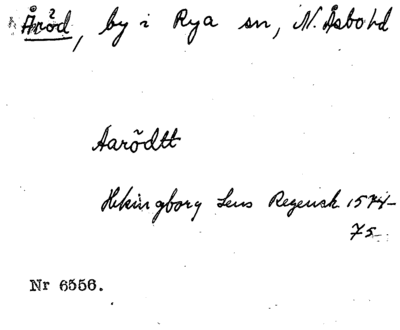 Åröd, by i Rya sn, N. Åsbo hd
Aarödtt
Helsingborg Lens Regensk 1574-
75
Nr 6556.